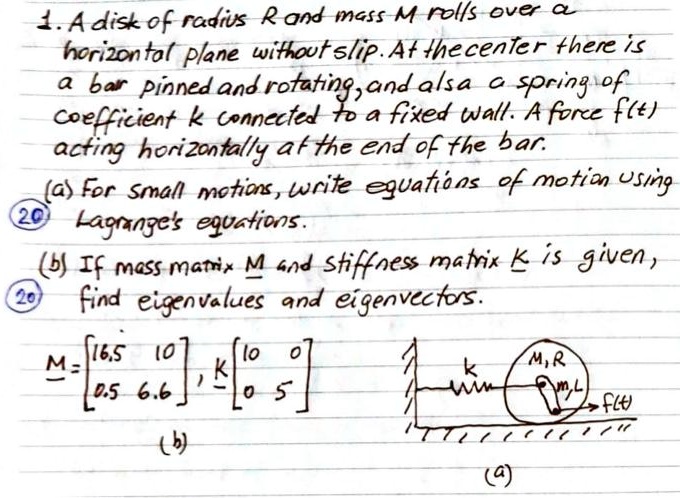 1. A disk of radius R and mass M rolls over a
horizontal plane without slip. At the center there is
a bar pinned and rotating, and alsa a spring of
coefficient k connected to a fixed wall. A force f(t)
acting horizontally at the end of the bar.
(a) For small motions, write equations of motion using
20 Lagrange's equations.
(b) If mass matrix M and stiffness matrix K is given,
20 find eigenvalues and eigenvectors.
M = [16.5 10
0.5 6.6], K [10 0
0 5]
(b)
k
M, R
m, L
f(t)
(a)